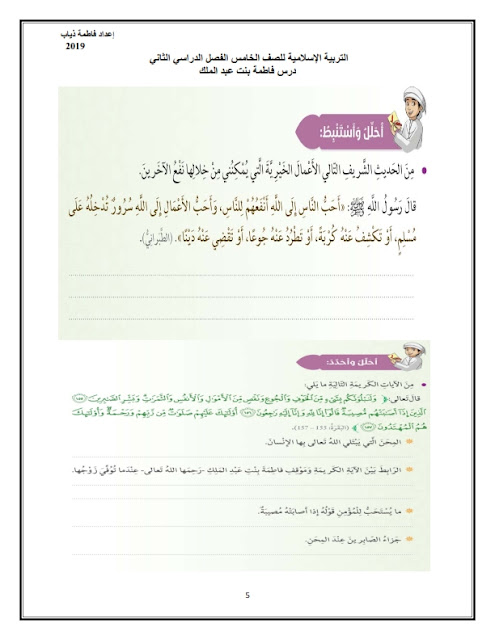 إعداد فاطمة ذياب
2019
التربية الإسلامية للصف الخامس الفصل الدراسي الثاني
درس فاطمة بنت عبد الملك
أُحَلِّلُ وَأَسْتَنْبِطُ:
• مِنَ الحَديثِ الشَّريفِ التّالي الأَعْمالَ الخَيْرِيَّةَ الَّتي يُمْكِنُني مِنْ خِلالِها نَفْعُ الآخَرينَ.
قالَ رَسُولُ اللَّهِ ﷺ: «أَحَبُّ النَّاسِ إِلَى اللَّهِ أَنْفَعُهُمْ لِلنَّاسِ، وَأَحَبُّ الأَعْمَالِ إِلَى اللَّهِ سُرُورٌ تُدْخِلُهُ عَلَى
مُسْلِمٍ، أَوْ تَكْشِفُ عَنْهُ كُرْبَةً، أَوْ تَطْرُدُ عَنْهُ جُوعًا، أَوْ تَقْضِي عَنْهُ دَيْنًا». (الطَّبَرانِيُّ).
أُحَلِّلُ وَأُحَدِّدُ:
• مِنَ الآياتِ الكَريمَةِ التّالِيَةِ ما يَلي:
قالَ تَعالى: ﴿ وَلَنَبْلُوَنَّكُم بِشَيْءٍ مِّنَ الْخَوْفِ وَالْجُوعِ وَنَقْصٍ مِّنَ الْأَمْوَالِ وَالْأَنفُسِ وَالثَّمَرَاتِ وَبَشِّرِ الصَّابِرِينَ (١٥٥)
الَّذِينَ إِذَا أَصَابَتْهُم مُّصِيبَةٌ قَالُوا إِنَّا لِلَّهِ وَإِنَّا إِلَيْهِ رَاجِعُونَ (١٥٦) أُولَٰئِكَ عَلَيْهِمْ صَلَوَاتٌ مِّن رَّبِّهِمْ وَرَحْمَةٌ وَأُولَٰئِكَ
هُمُ الْمُهْتَدُونَ (١٥٧) ﴾ (البَقَرَةُ: 155 - 157).
المِحَنَ الَّتي يَبْتَلي اللهُ تَعالى بِها الإِنْسانَ.
الرّابِطَ بَيْنَ الآيَةِ الكَريمَةِ وَمَوْقِفِ فاطِمَةَ بِنْتِ عَبْدِ المَلِكِ -رَحِمَها اللهُ تَعالى- عِنْدَما تُوُفِّيَ زَوْجُها.
ما يُسْتَحَبُّ لِلْمُؤْمِنِ قَوْلُهُ إِذا أَصابَتْهُ مُصيبَةٌ.
جَزاءَ الصّابِرينَ عِنْدَ المِحَنِ.
5